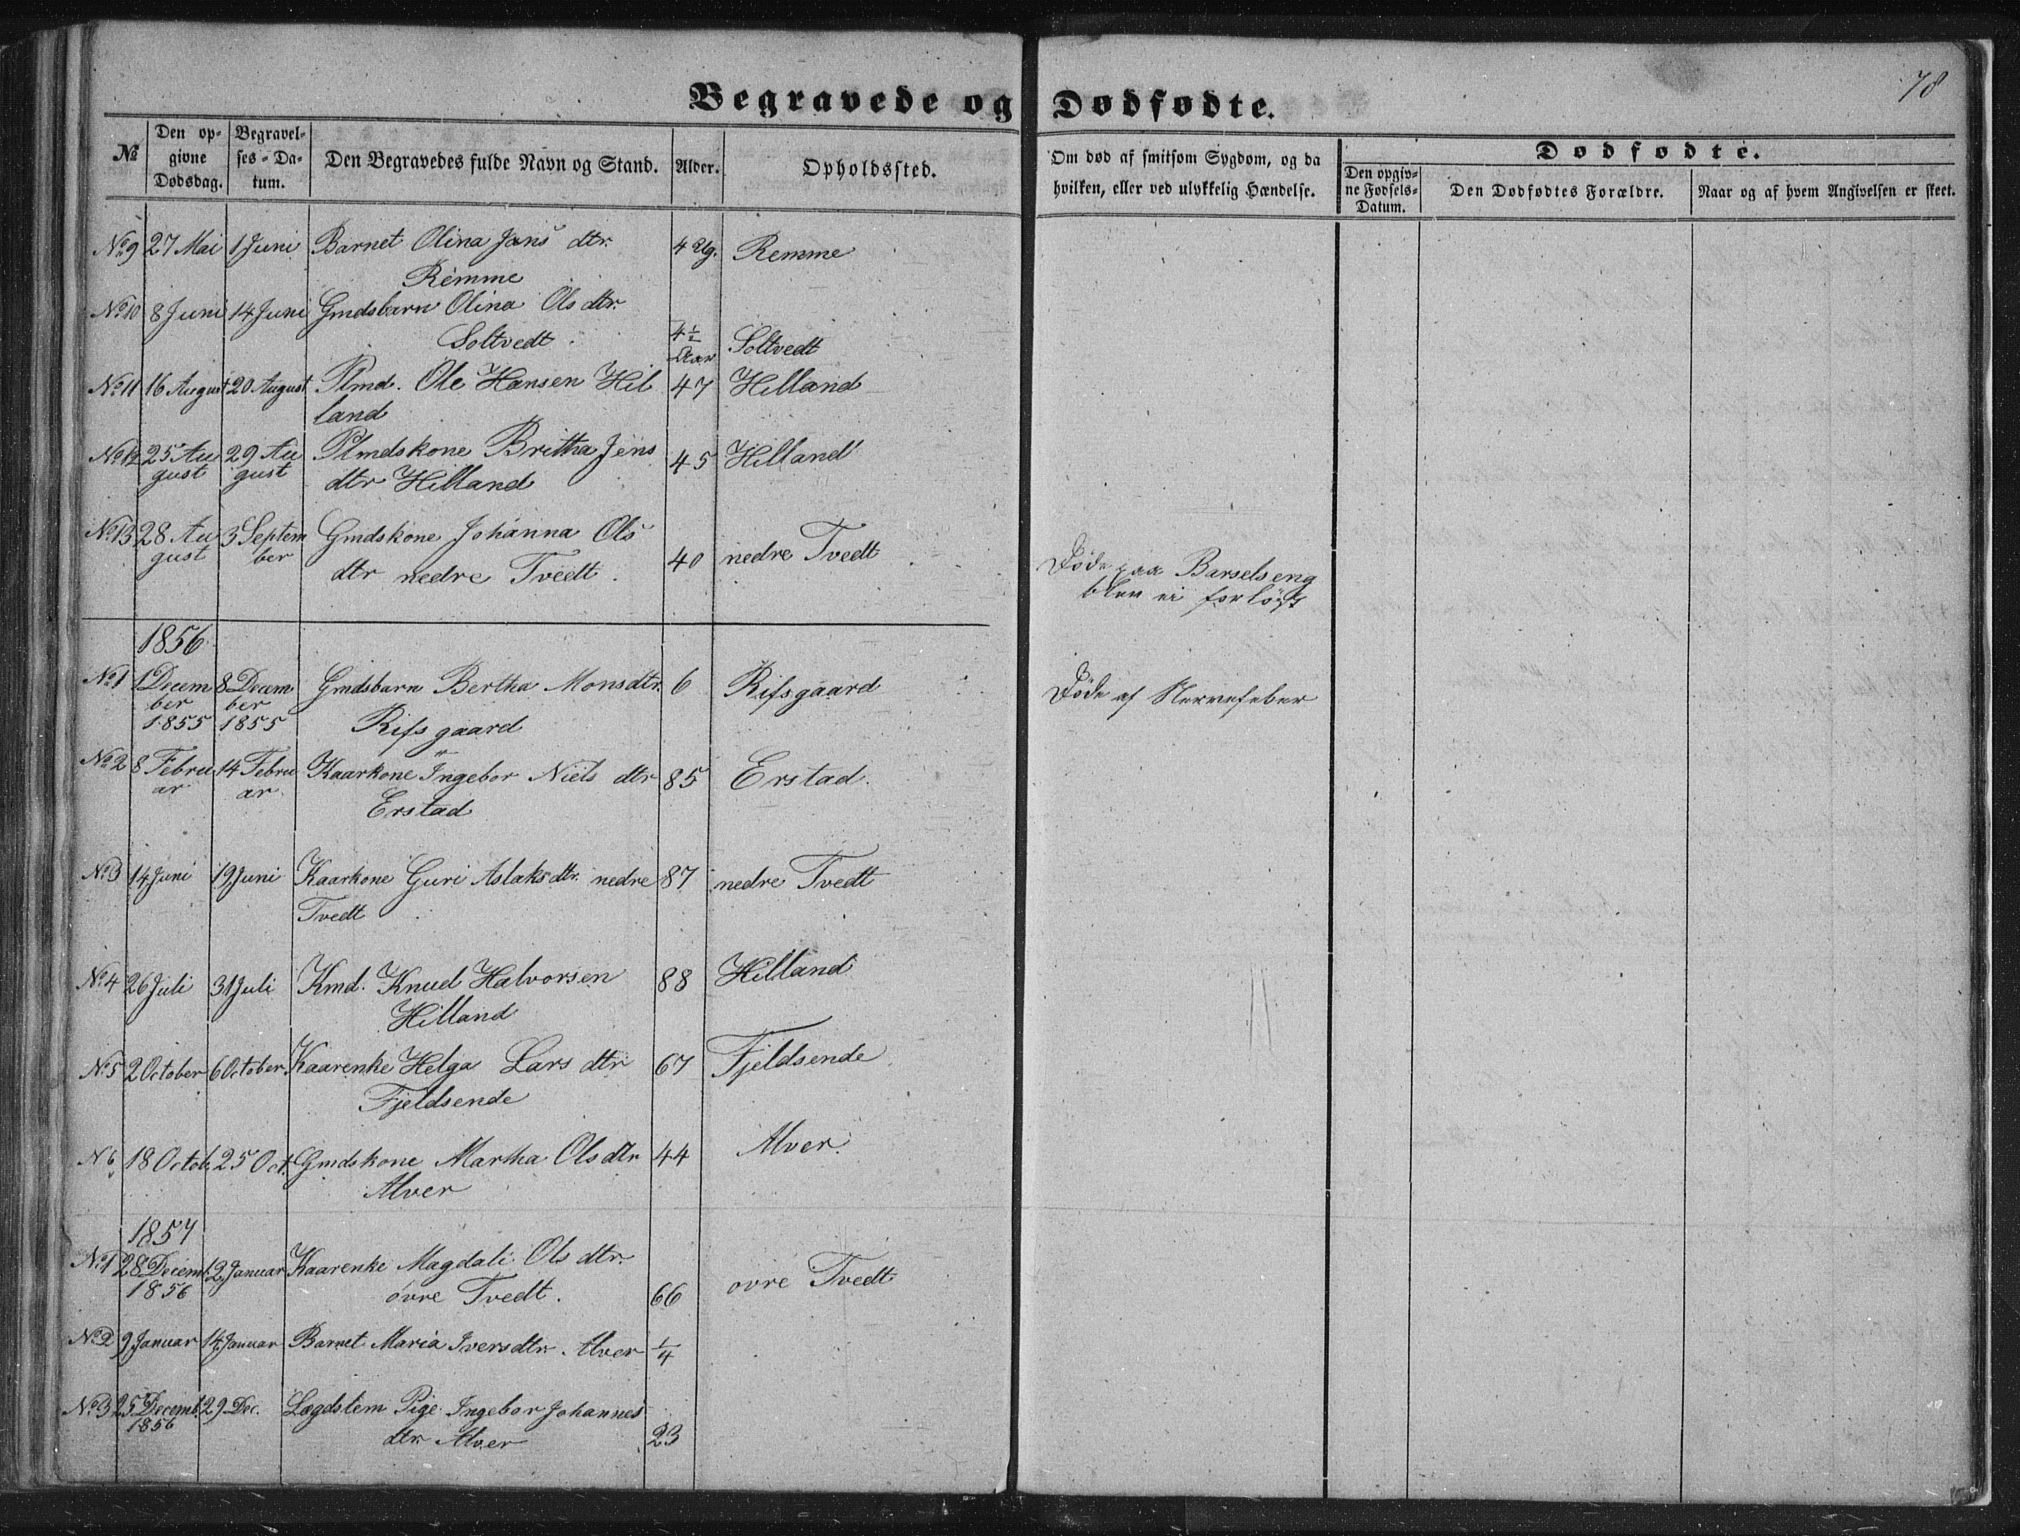 78
Begravede og Dødfødte.
№
Den op-
givne
Dødsdag.
Begravel-
ses-Da-
tum.
Den Begravedes fulde Navn og Stand.
Alder.
Opholdssted.
Om død af smitsom Sygdom, og da
hvilken, eller ved ulykkelig Hændelse.
Dødfødte.
Den opgiv-
ne Fødsels-
Datum.
Den Dødfødtes Forældre.
Naar og af hvem Angivelsen er skeet.
No 9 27 Mai 1 Juni Barnet Olina Jans dtr. 4 Ug. Remme
Remme
No 10 8 Juni 14 Juni Gmdsbarn Olina Ols dtr.
Soltvedt 4½ Aar Soltvedt
No 11 16 August 20 August Plmd. Ole Hansen Hil 47 Hilland
land
No 12 25 Au 29 Au Plmdskone Britha Jens 45 Hilland
gust gust dtr Hilland
No 13 28 Au 3 Septem Gmdskone Johanna Ols
gust ber dtr nedre Tvedt. 40 nedre Tvedt Døde paa Barselseng
blev ei forløst
1856
No 1 1 Decem 8 Decem Gmdsbarn Bertha Monsdtr. 6 Rifsgaard Døde af Nervefeber
ber ber
1855 1855 Rifsgaard
No 2 8 Febru 14 Febru Kaarkone Ingebor Niels dtr 85 Erstad.
ar ar. Erstad
No 3 14 Juni 19 Juni Kaarkone Guri Aslaksdtr. nedre 87 nedre Tvedt
Tvedt
No 4 26 Juli 31 Juli Kmd. Knud Halvorsen 88 Hilland
Hilland
No 5 2 October 6 October Kaarenke Helga Lars dtr 67 Fjeldsende
Fjeldsende
No 6 18 Octob. 25 Oct. Gmdskone Martha Ols dtr 44 Alver.
Alver
1857
No 1 28 Decemb. 2 Januar Kaarenke Magdali Ols dtr.
1856 øvre Tvedt. 66 ovre Tvedt
No 2 9 Januar 14 Januar Barnet Maria Iversdtr. Alver ¼
No 3 25 Decemb. 29 Dec. Lægdslem Pige Ingebor Johannes
1856 dtr. Alver 23